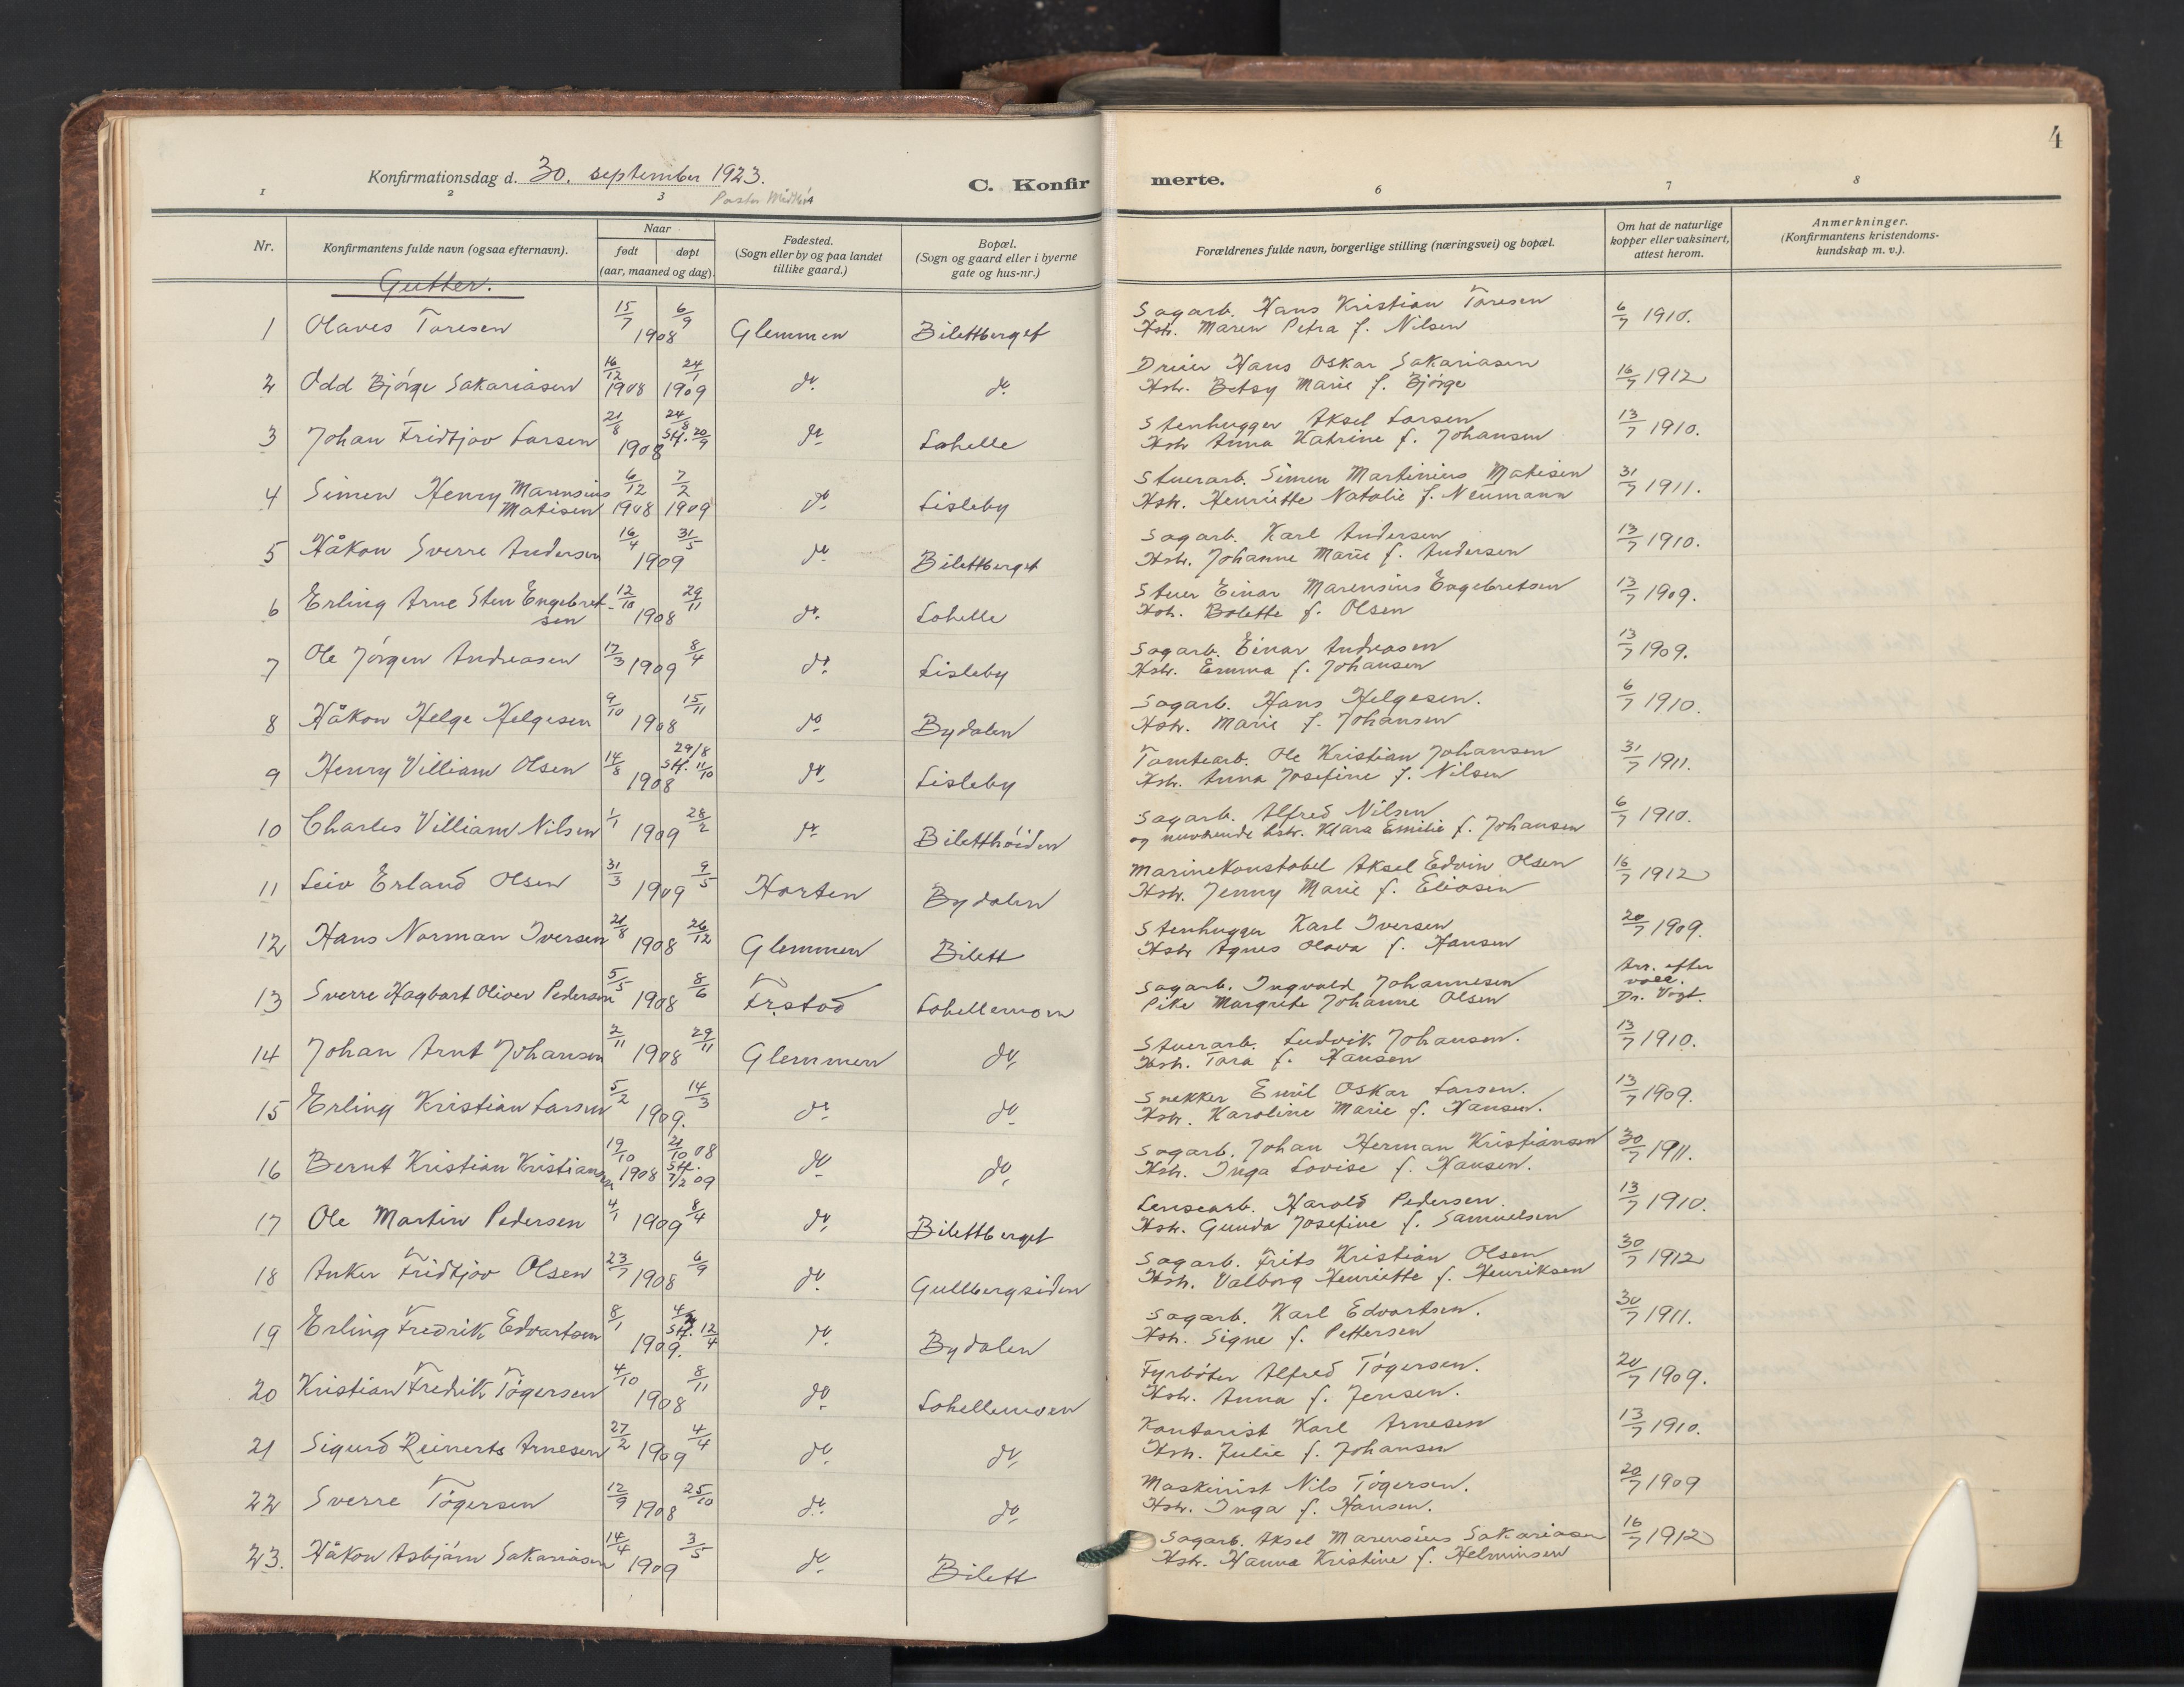 4
Konfirmationsdag d. 30. september 1923.
C. Konfirmerte.
1 2 3 4 6 7 8
Nr. Konfirmantens fulde navn (ogsaa efternavn). Naar født døpt (aar, maaned og dag). Fødested. (Sogn eller by og paa landet tillike gaard.) Bopæl. (Sogn og gaard eller i byerne gate og hus-nr.) Forældrenes fulde navn, borgerlige stilling (næringsvei) og bopæl. Om hat de naturlige kopper eller vaksinert, attest herom. Anmerkninger. (Konfirmantens kristendoms-kundskap m. v.).
Gutter.
1 Olaves Toresen 15/7 6/9 1908 Glemmen Bilettberget Sagarb. Hans Kristian Toresen 6/7 1910.
Hstr. Maren Petra f. Nilsen
2 Odd Bjørge Sakariasen 16/12 1908 24/1 1909 do. do. Driver Hans Oskar Sakariasen 16/7 1912
Hstr. Betsy Marie f. Bjørge
3 Johan Fridtjov Larsen 21/8 24/8 St. 20/9 1908 do Lahelle Stenhugger Aksel Larsen 13/7 1910.
Hstr Anna Katrine f. Johansen
4 Simen Henry Marensius Matisen 6/12 1908 7/2 1909 do Lisleby Stuerarb. Simen Martinius Matisen 31/7 1911.
Hstr. Henriette Natalie f. Neumann
5 Håkon Sverre Andersen 16/4 31/5 1909 do Bilettberget Sagarb. Karl Andersen 13/7 1910.
Hstr. Johanne Marie f. Andersen
6 Erling Arne Sten Engebret-sen 12/10 29/11 1908 do. Lahelle Stuer Einar Marensius Engebretsen 13/7 1909.
Hstr. Bolette f. Olsen
7 Ole Jörgen Andreasen 17/3 1909 8/4 do. Lisleby Sagarb. Einar Andreasen 13/7 1909.
Hstr. Emma f. Johansen
8 Håkon Helge Helgesen 9/10 1908 15/11 do Bydalen Sagarb. Hans Helgesen. 6/7 1910.
Hstr. Marie f. Johansen
9 Henry Villiam Olsen 14/8 29/8 St. 11/10 1908 do Lisleby Tomtearb. Ole Kristian Johansen 31/7 1911.
Hstr. Anna Josefine f. Nilsen
10 Charles Villiam Nilsen 1/1 1909 28/2 do Biletthöiden Sagarb. Alfred Nilsen 6/7 1910.
og nuværende hstr. Klara Emilie f. Johansen
11 Leiv Erland Olsen 31/3 1909 9/5 Horten Bydalen Marinekonstabel Aksel Edvin Olsen 16/7 1912
Hstr. Jenny Marie f. Eliasen
12 Hans Norman Iversen 21/8 1908 26/12 Glemmen Bilett Stenhugger Karl Iversen 20/7 1909.
Hstr Agnes Olava f. Hansen
13 Sverre Hagbart Oliver Pedersen 5/5 1908 8/6 Fr.stad Lahellemoen Sagarb. Ingvald Johannesen Arr. efter vacc. Dr. Vogt.
Pike Margrete Johanne Olsen
14 Johan Arnt Johansen 2/11 1908 29/11 Glemmen do, Stuerarb. Ludvik Johansen. 13/7 1910.
Hstr. Tora f. Hansen
15 Erling Kristian Larsen 5/2 1909. 14/3 do do Snekker Emil Oskar Larsen. 13/7 1909.
Hstr. Karoline Marie f. Hansen.
16 Bernt Kristian Kristiansen 19/10 1908 21/10 08 St. 7/2 09 do do, Sagarb. Johan Herman Kristiansen 30/7 1911.
Hstr. Inga Lovise f. Hansen.
17 Ole Martin Pedersen 4/1 1909 8/4 do, Bilettberget Lensearb. Harald Pedersen. 13/7 1910.
Hstr. Gunda Josefine f. Samuelsen
18 Anker Fridtjov Olsen 23/7 1908 6/9 do. Gullbergsiden Sagarb. Frits Kristian Olsen 30/7 1912
Hstr. Valborg Henriette f. Henriksen
19 Erling Fredrik Edvartsen 8/1 St. 12/4 1909. do Bydalen Sagarb. Karl Edvartsen. 30/7 1911.
Hstr. Signe f. Pettersen
20 Kristian Fredrik Tögersen 4/10 1908 8/11 do Lahellemoen Fyrböter Alfred Tögersen. 20/7 1909.
Hstr. Anna f. Jensen.
21 Sigurd Reinerts Arnesen 27/2 1909 4/4 do, do, Kontorist Karl Arnesen 13/7 1910.
Hstr. Julie f. Johansen
22 Sverre Tögersen 12/9 1908 25/10 do. do, Maskinist Nils Tögersen. 20/7 1909
Hstr. Inga f. Hansen.
23. Håkon Asbjørn Sakariasen 14/4 1909 3/5 do Bilett Sagarb. Aksel Marensius Sakariasen 16/7 1912
Hstr. Hanna Kristine f. Helminsen